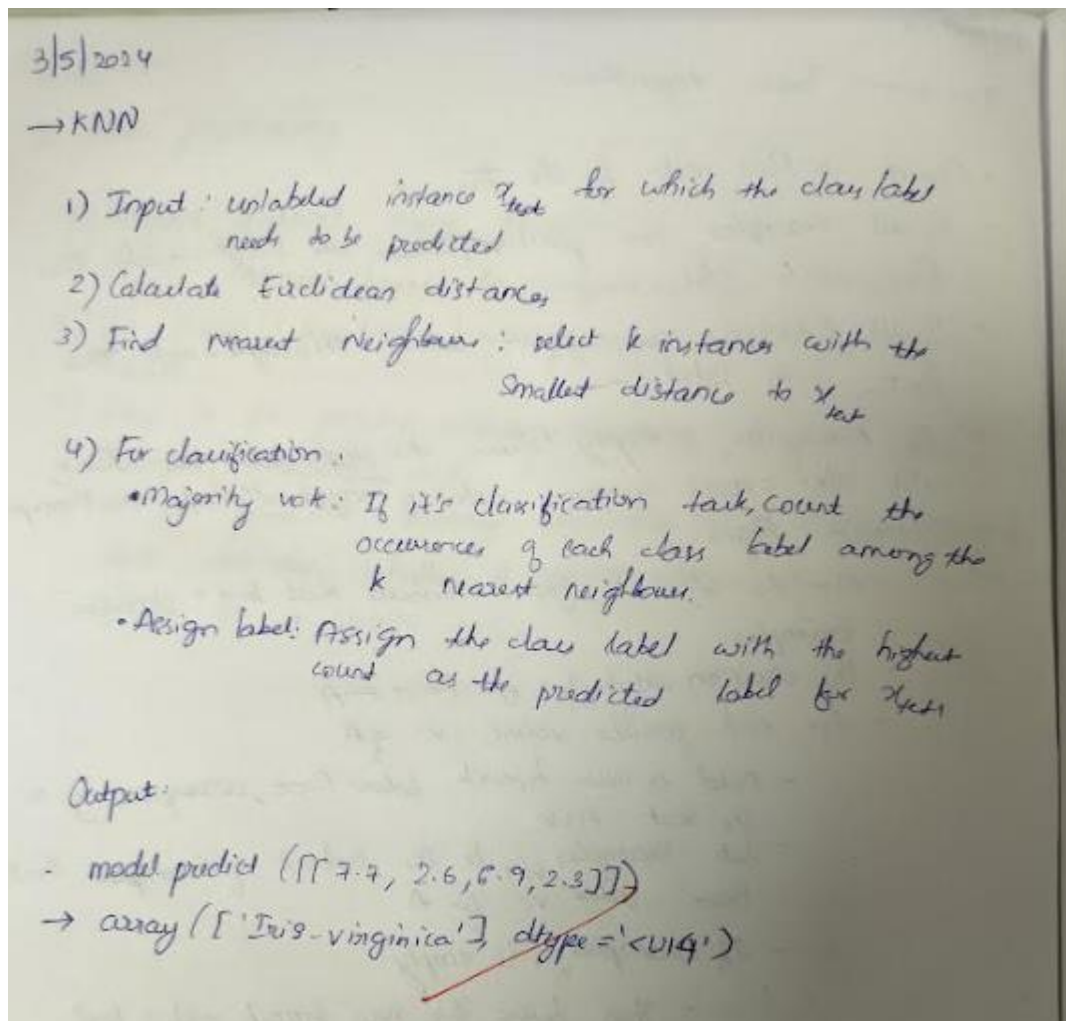 3/5/2024
→ KNN
1) Input: unlabeled instance x_test for which the class label
needs to be predicted
2) Calculate Euclidean distances
3) Find nearest Neighbours : select k instances with the
Smallest distance to x_test
4) For classification:
• Majority vote: If it's classification task, count the
occurrences of each class label among the
k nearest neighbours.
• Assign label: Assign the class label with the highest
count as the predicted label for x_test
Output:
- model predict ([[7.7, 2.6, 6.9, 2.3]])
→ array (['Iris-virginica'], dtype='<U14')